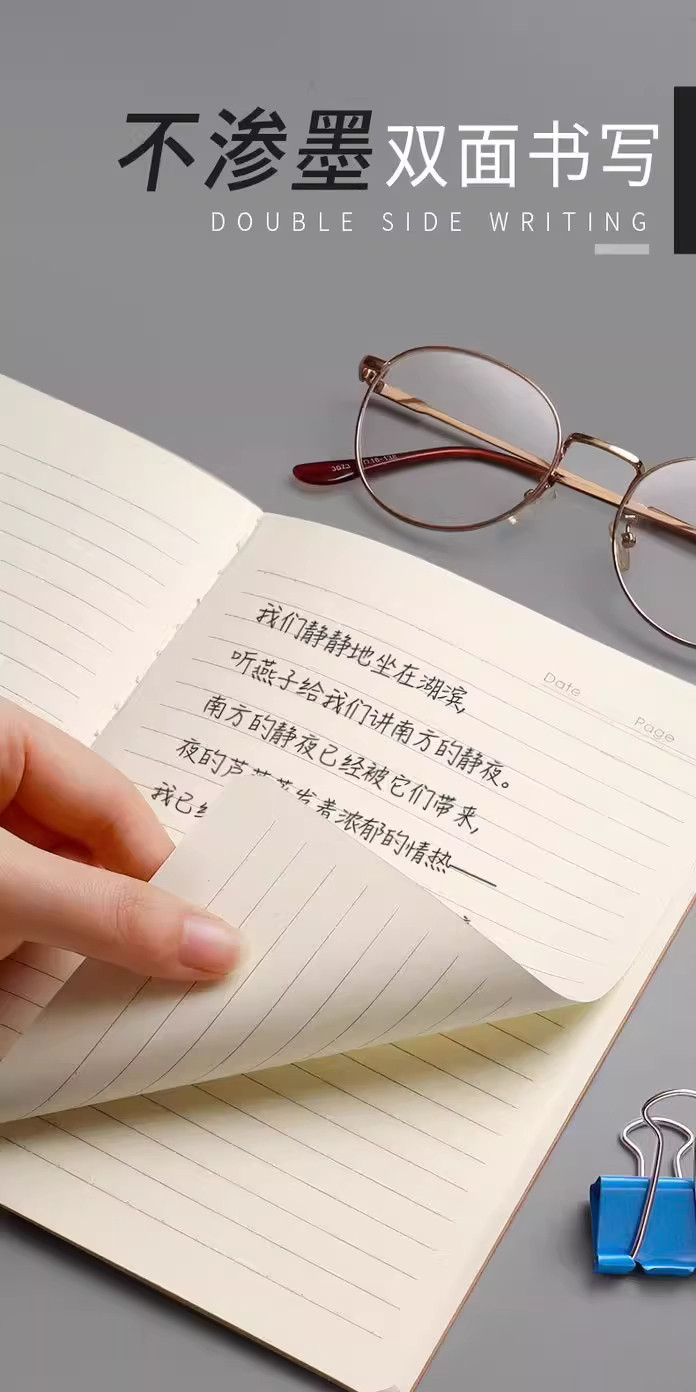 不渗墨双面书写
DOUBLE SIDE WRITING
Date
Page
我们静静地坐在湖滨，
听燕子给我们讲南方的静夜。
南方的静夜已经被它们带来，
夜的芦 发着浓郁的情热——
我已